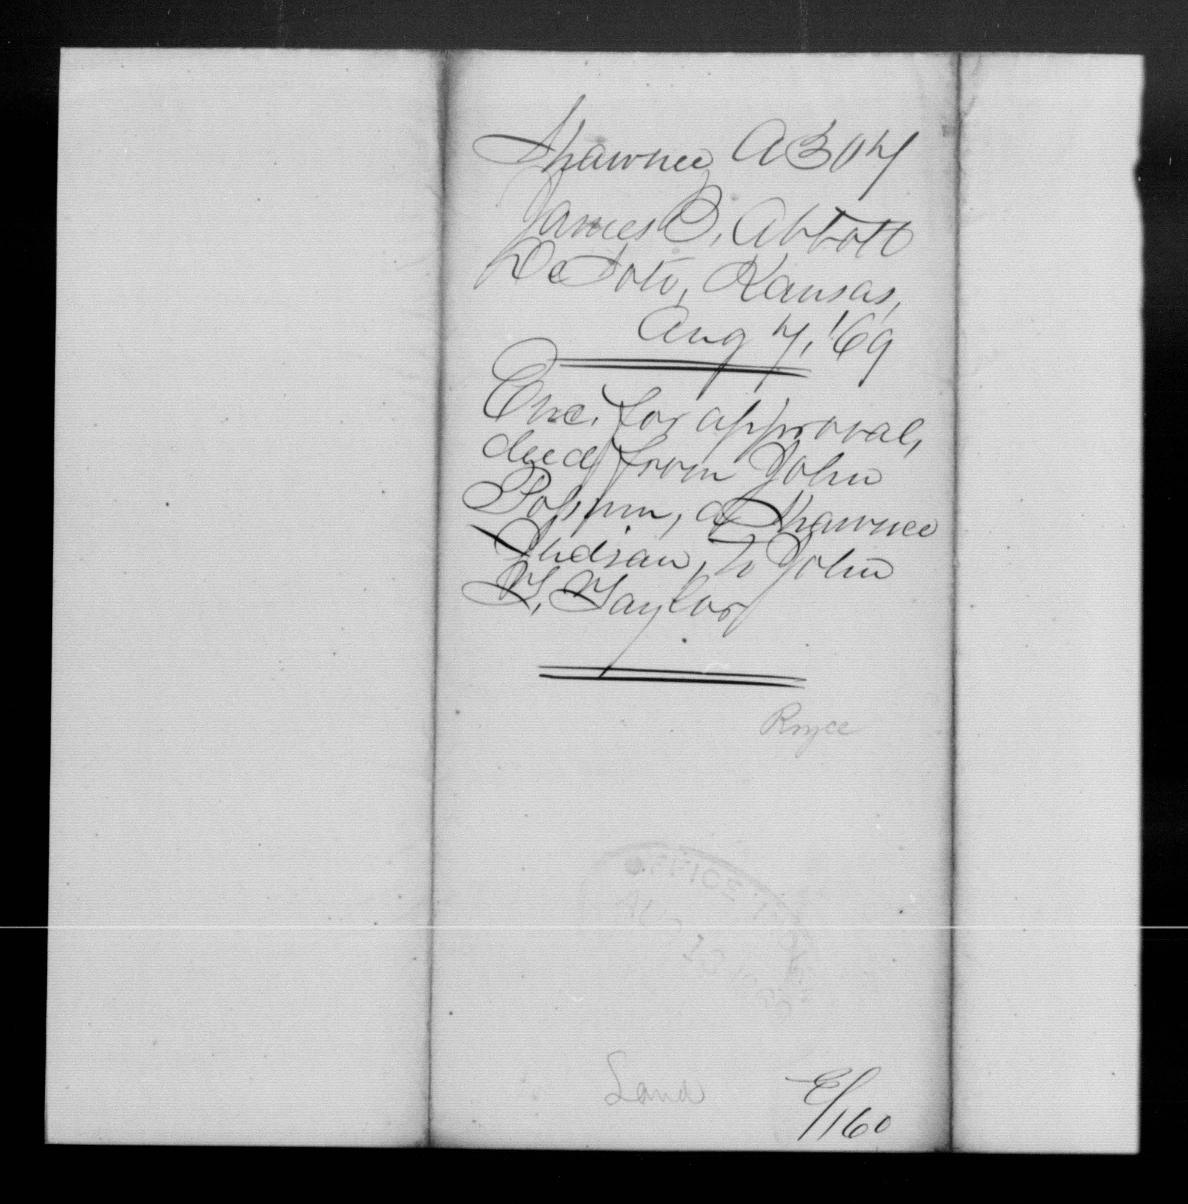 Shawnee A 307
James B. Abbott
De Soto, Kansas,
Aug 7, '69
Enc. for approval,
deed from John
Possum, a Shawnee
Indian, to John
T. Taylor
Royce
AUG 13
Land
E/160